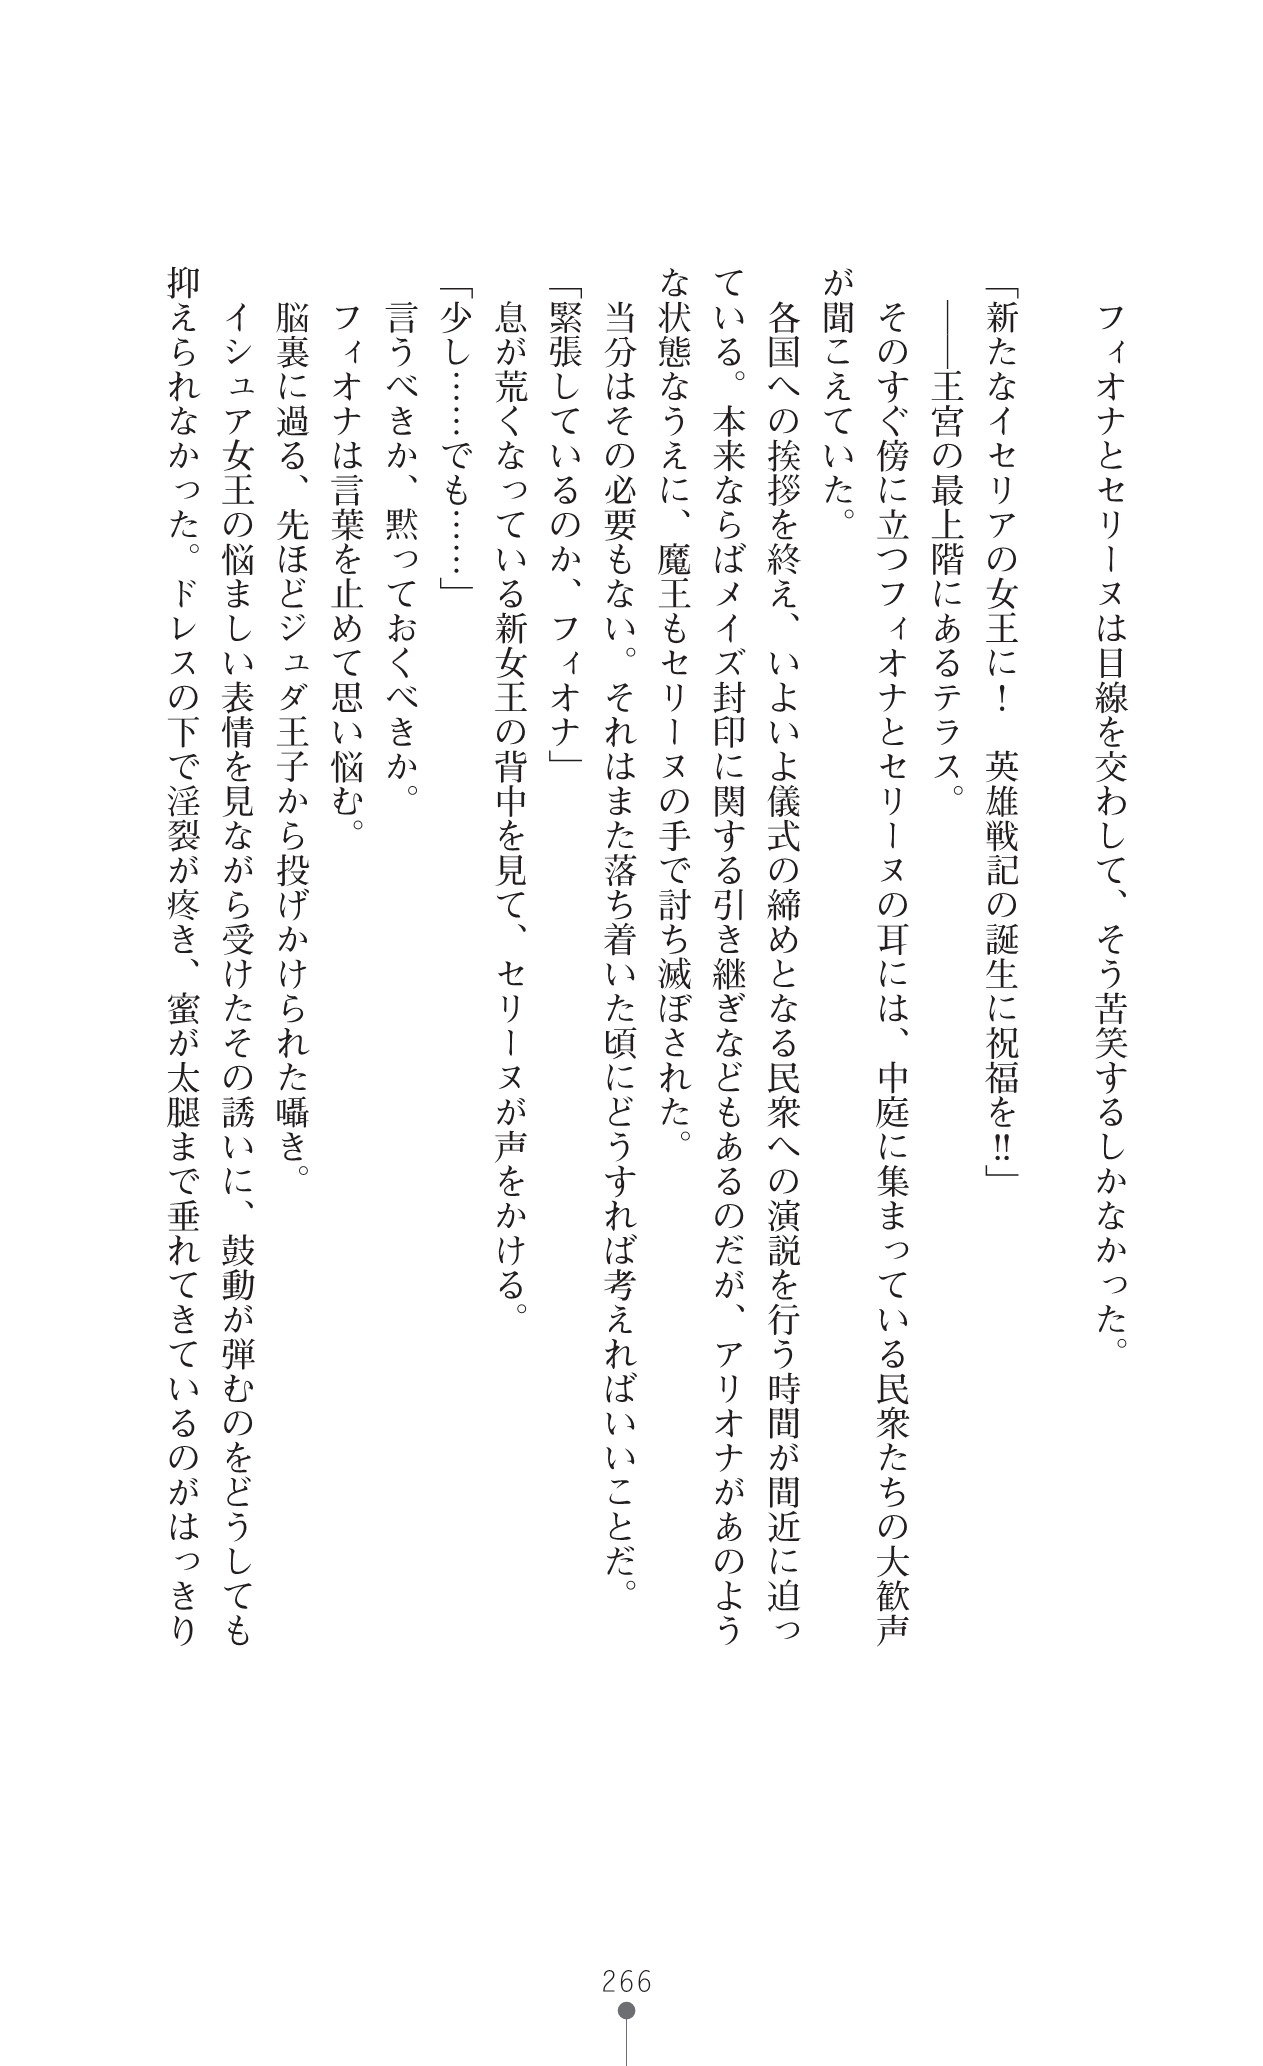 フィオナとセリーヌは目線を交わして、そう苦笑するしかなかった。
「新たなイセリアの女王に！　英雄戦記の誕生に祝福を!!」
――王宮の最上階にあるテラス。
そのすぐ傍に立つフィオナとセリーヌの耳には、中庭に集まっている民衆たちの大歓声
が聞こえていた。
各国への挨拶を終え、いよいよ儀式の締めとなる民衆への演説を行う時間が間近に迫っ
ている。本来ならばメイズ封印に関する引き継ぎなどもあるのだが、アリオナがあのよう
な状態なうえに、魔王もセリーヌの手で討ち滅ぼされた。
当分はその必要もない。それはまた落ち着いた頃にどうすれば考えればいいことだ。
「緊張しているのか、フィオナ」
息が荒くなっている新女王の背中を見て、セリーヌが声をかける。
「少し……でも……」
言うべきか、黙っておくべきか。
フィオナは言葉を止めて思い悩む。
脳裏に過る、先ほどジュダ王子から投げかけられた囁き。
イシュア女王の悩ましい表情を見ながら受けたその誘いに、鼓動が弾むのをどうしても
抑えられなかった。ドレスの下で淫裂が疼き、蜜が太腿まで垂れてきているのがはっきり
266